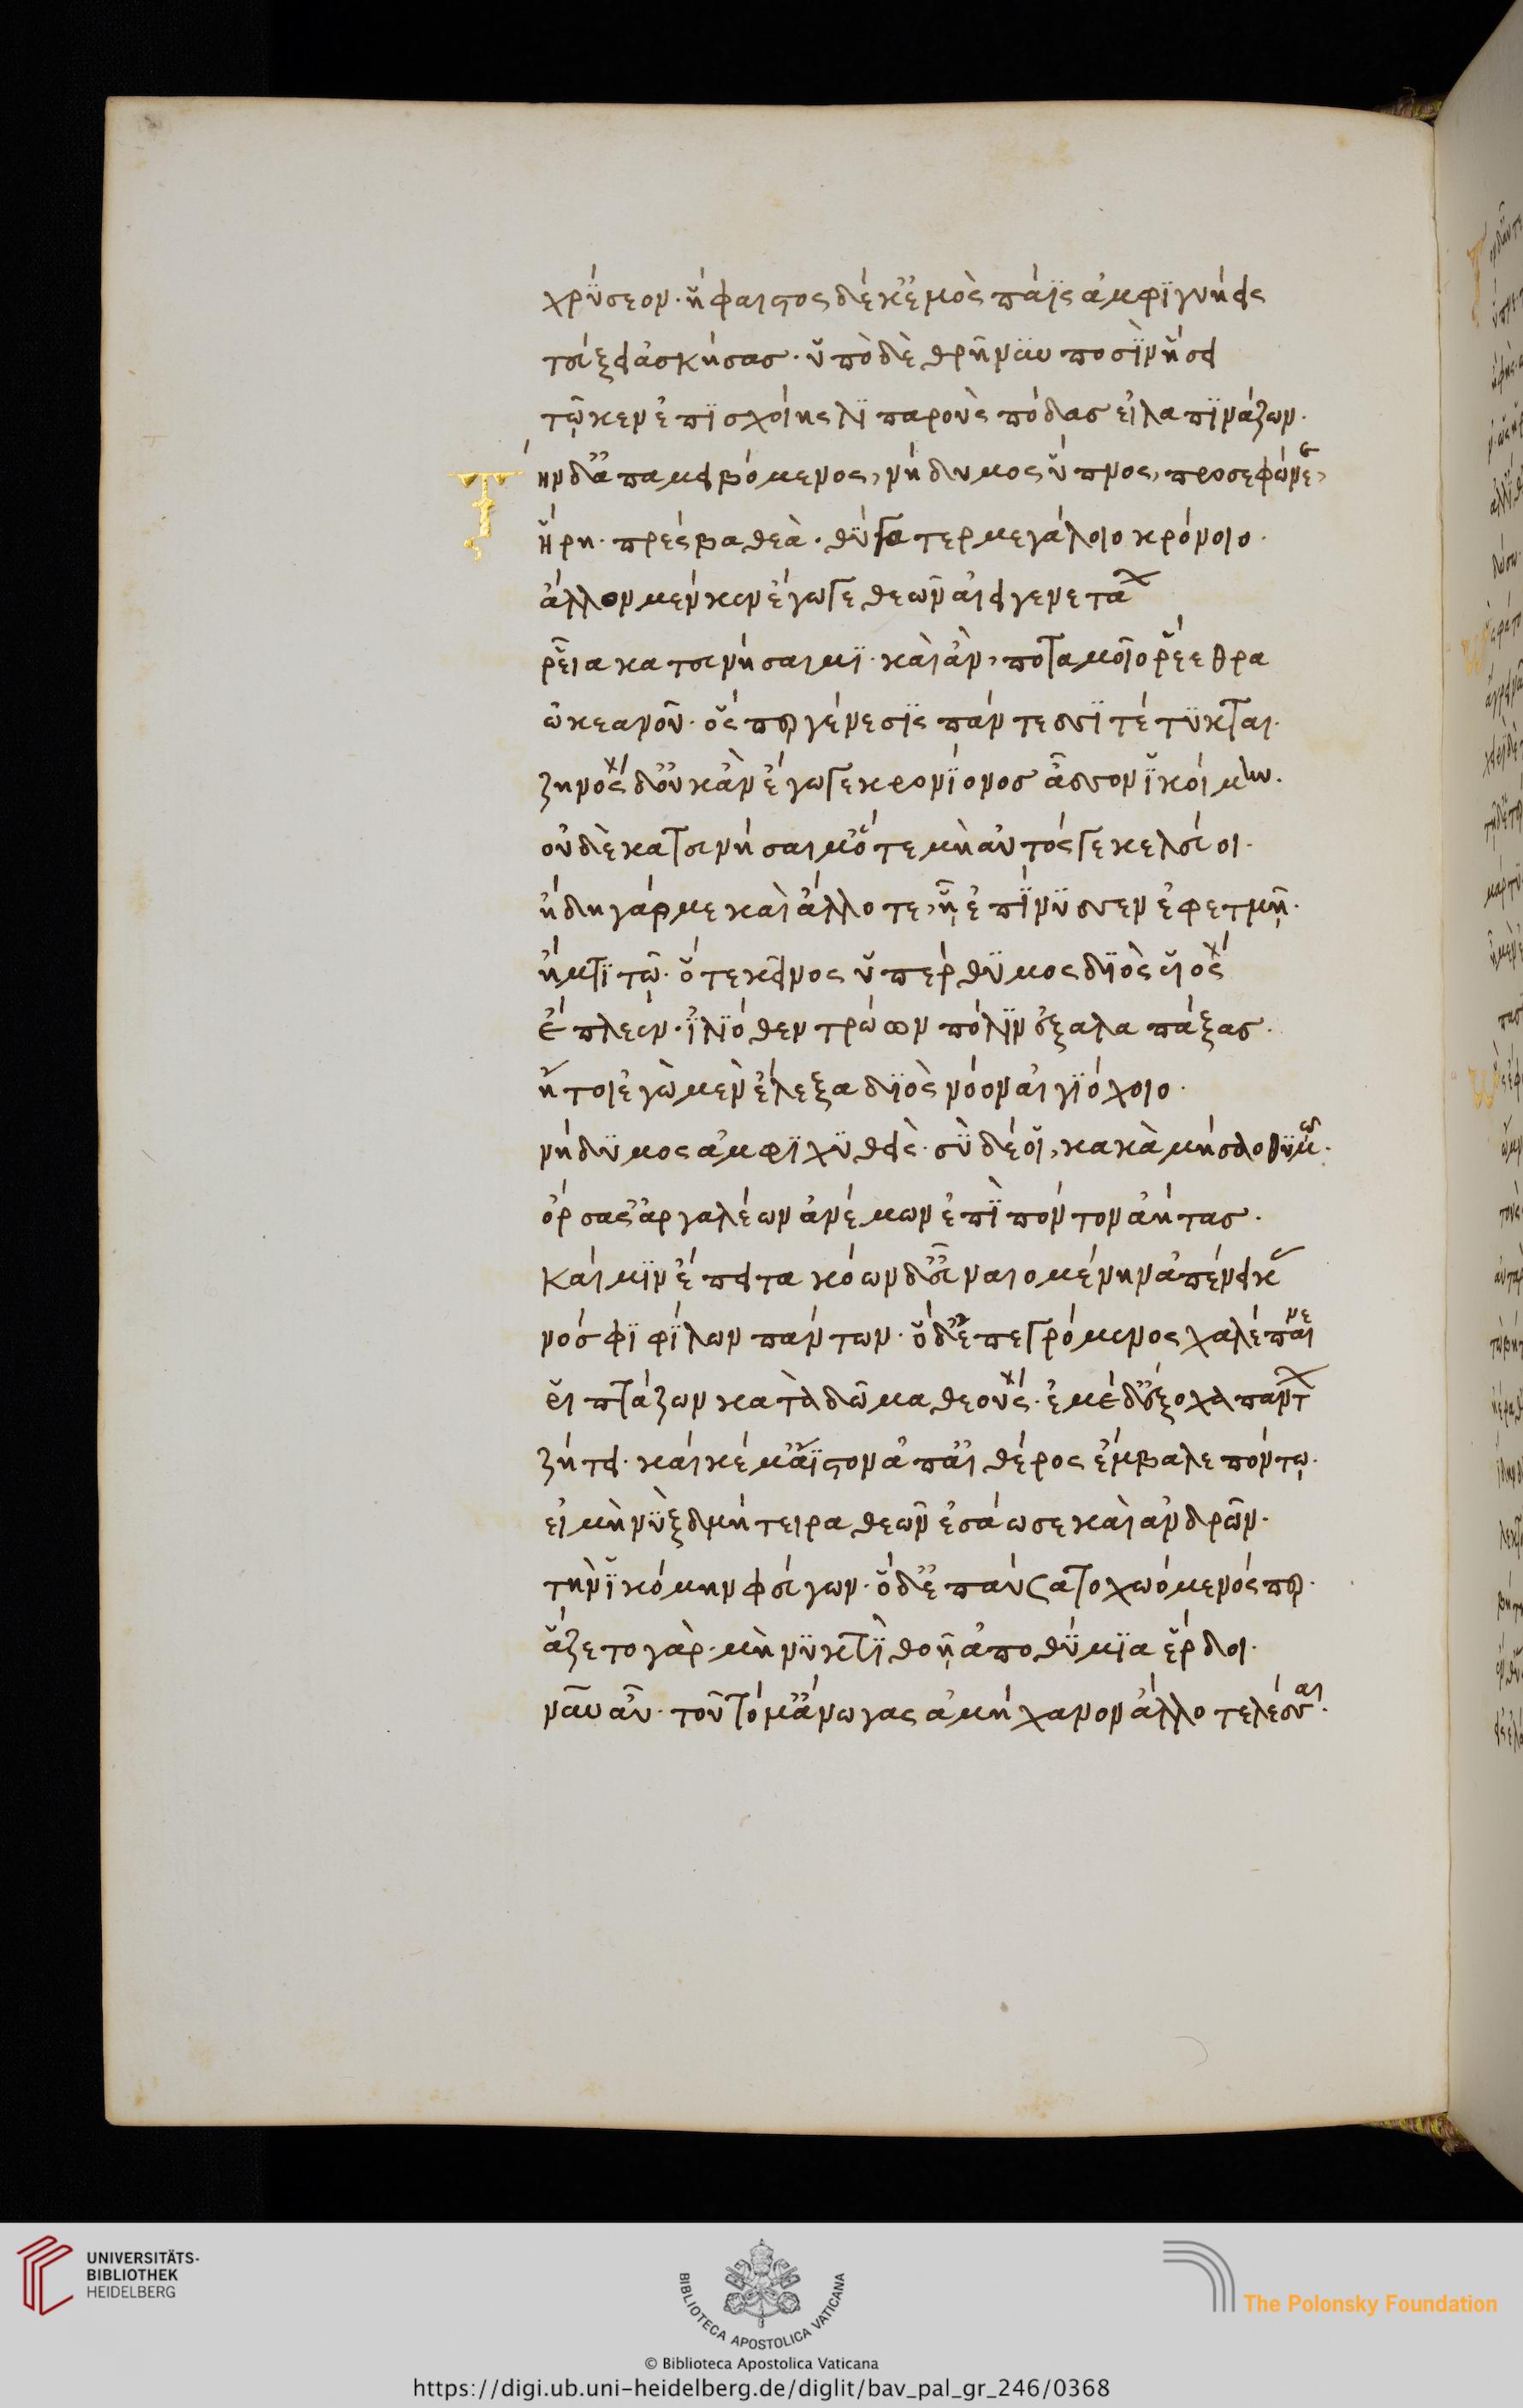 χρύσεον· ἥφαιστος δέ κ' ἐμὸς πάϊς ἀμφιγυήεις
τεύξει ἀσκήσας· ὑπὸ δὲ θρῆνυν ποσὶν ἥσει
τῷ κεν ἐπισχοίης λιπαροὺς πόδας εἰλαπινάζων·
Τὴν δ' ἀπαμειβόμενος, νήδυμος ὕπνος, προσεφώνει,
ἥρη· πρέσβα θεὰ· θύγατερ μεγάλοιο κρόνοιο·
ἄλλον μέν κεν ἔγωγε θεῶν αἰειγενετάων
ῥεῖα κατευνήσαιμι· καὶ ἂν, ποταμοῖο ῥέεθρα
ὠκεανοῦ· ὅς περ γένεσις πάντεσσι τέτυκται·
ζηνὸς δ' οὐκ ἂν ἔγωγε κρονίονος ἆσσον ἱκοίμην·
οὐδὲ κατευνήσαιμ' ὅτε μὴ αὐτός γε κελεύοι·
ἤδη γάρ με καὶ ἄλλοτε, ἣ ἐπίνυσσεν ἐφετμῇ·
ἤματι τῷ· ὅτε κεῖνος ὑπέρθυμος διὸς υἱὸς
ἔπλεεν· ἰλιόθεν τρώων πόλιν ἐξαλαπάξας·
ἤτοι ἐγὼ μὲν ἔλεξα διὸς νόον αἰγιόχοιο·
νήδυμος ἀμφιχυθεὶς· σὺ δέ οἱ, κακὰ μήσαο θυμῷ·
ὄρσασ' ἀργαλέων ἀνέμων ἐπὶ πόντον ἀήτας·
καί μιν ἔπειτα κόων δ' εὖ ναιομένην ἀπένεικας
νόσφι φίλων πάντων· ὁ δ' ἐπεγρόμενος χαλέπαινε
ῥιπτάζων κατὰ δῶμα θεοὺς· ἐμὲ δ' ἔξοχα πάντων
ζήτει· καί κέ μ' ἄϊστον ἀπ' αἰθέρος ἔμβαλε πόντῳ·
εἰ μὴ νὺξ δμήτειρα θεῶν ἐσάωσε καὶ ἀνδρῶν·
τὴν ἱκόμην φεύγων· ὁ δ' ἐπαύσατο χωόμενός περ·
ἅζετο γὰρ· μὴ νυκτὶ θοῇ ἀποθύμια ἕρδοι·
νῦν αὖ· τοῦτό μ' ἄνωγας ἀμήχανον ἄλλο τελέσσαι·
UNIVERSITÄTS-
BIBLIOTHEK
HEIDELBERG
BIBLIOTECA APOSTOLICA VATICANA
The Polonsky Foundation
© Biblioteca Apostolica Vaticana
https://digi.ub.uni-heidelberg.de/diglit/bav_pal_gr_246/0368